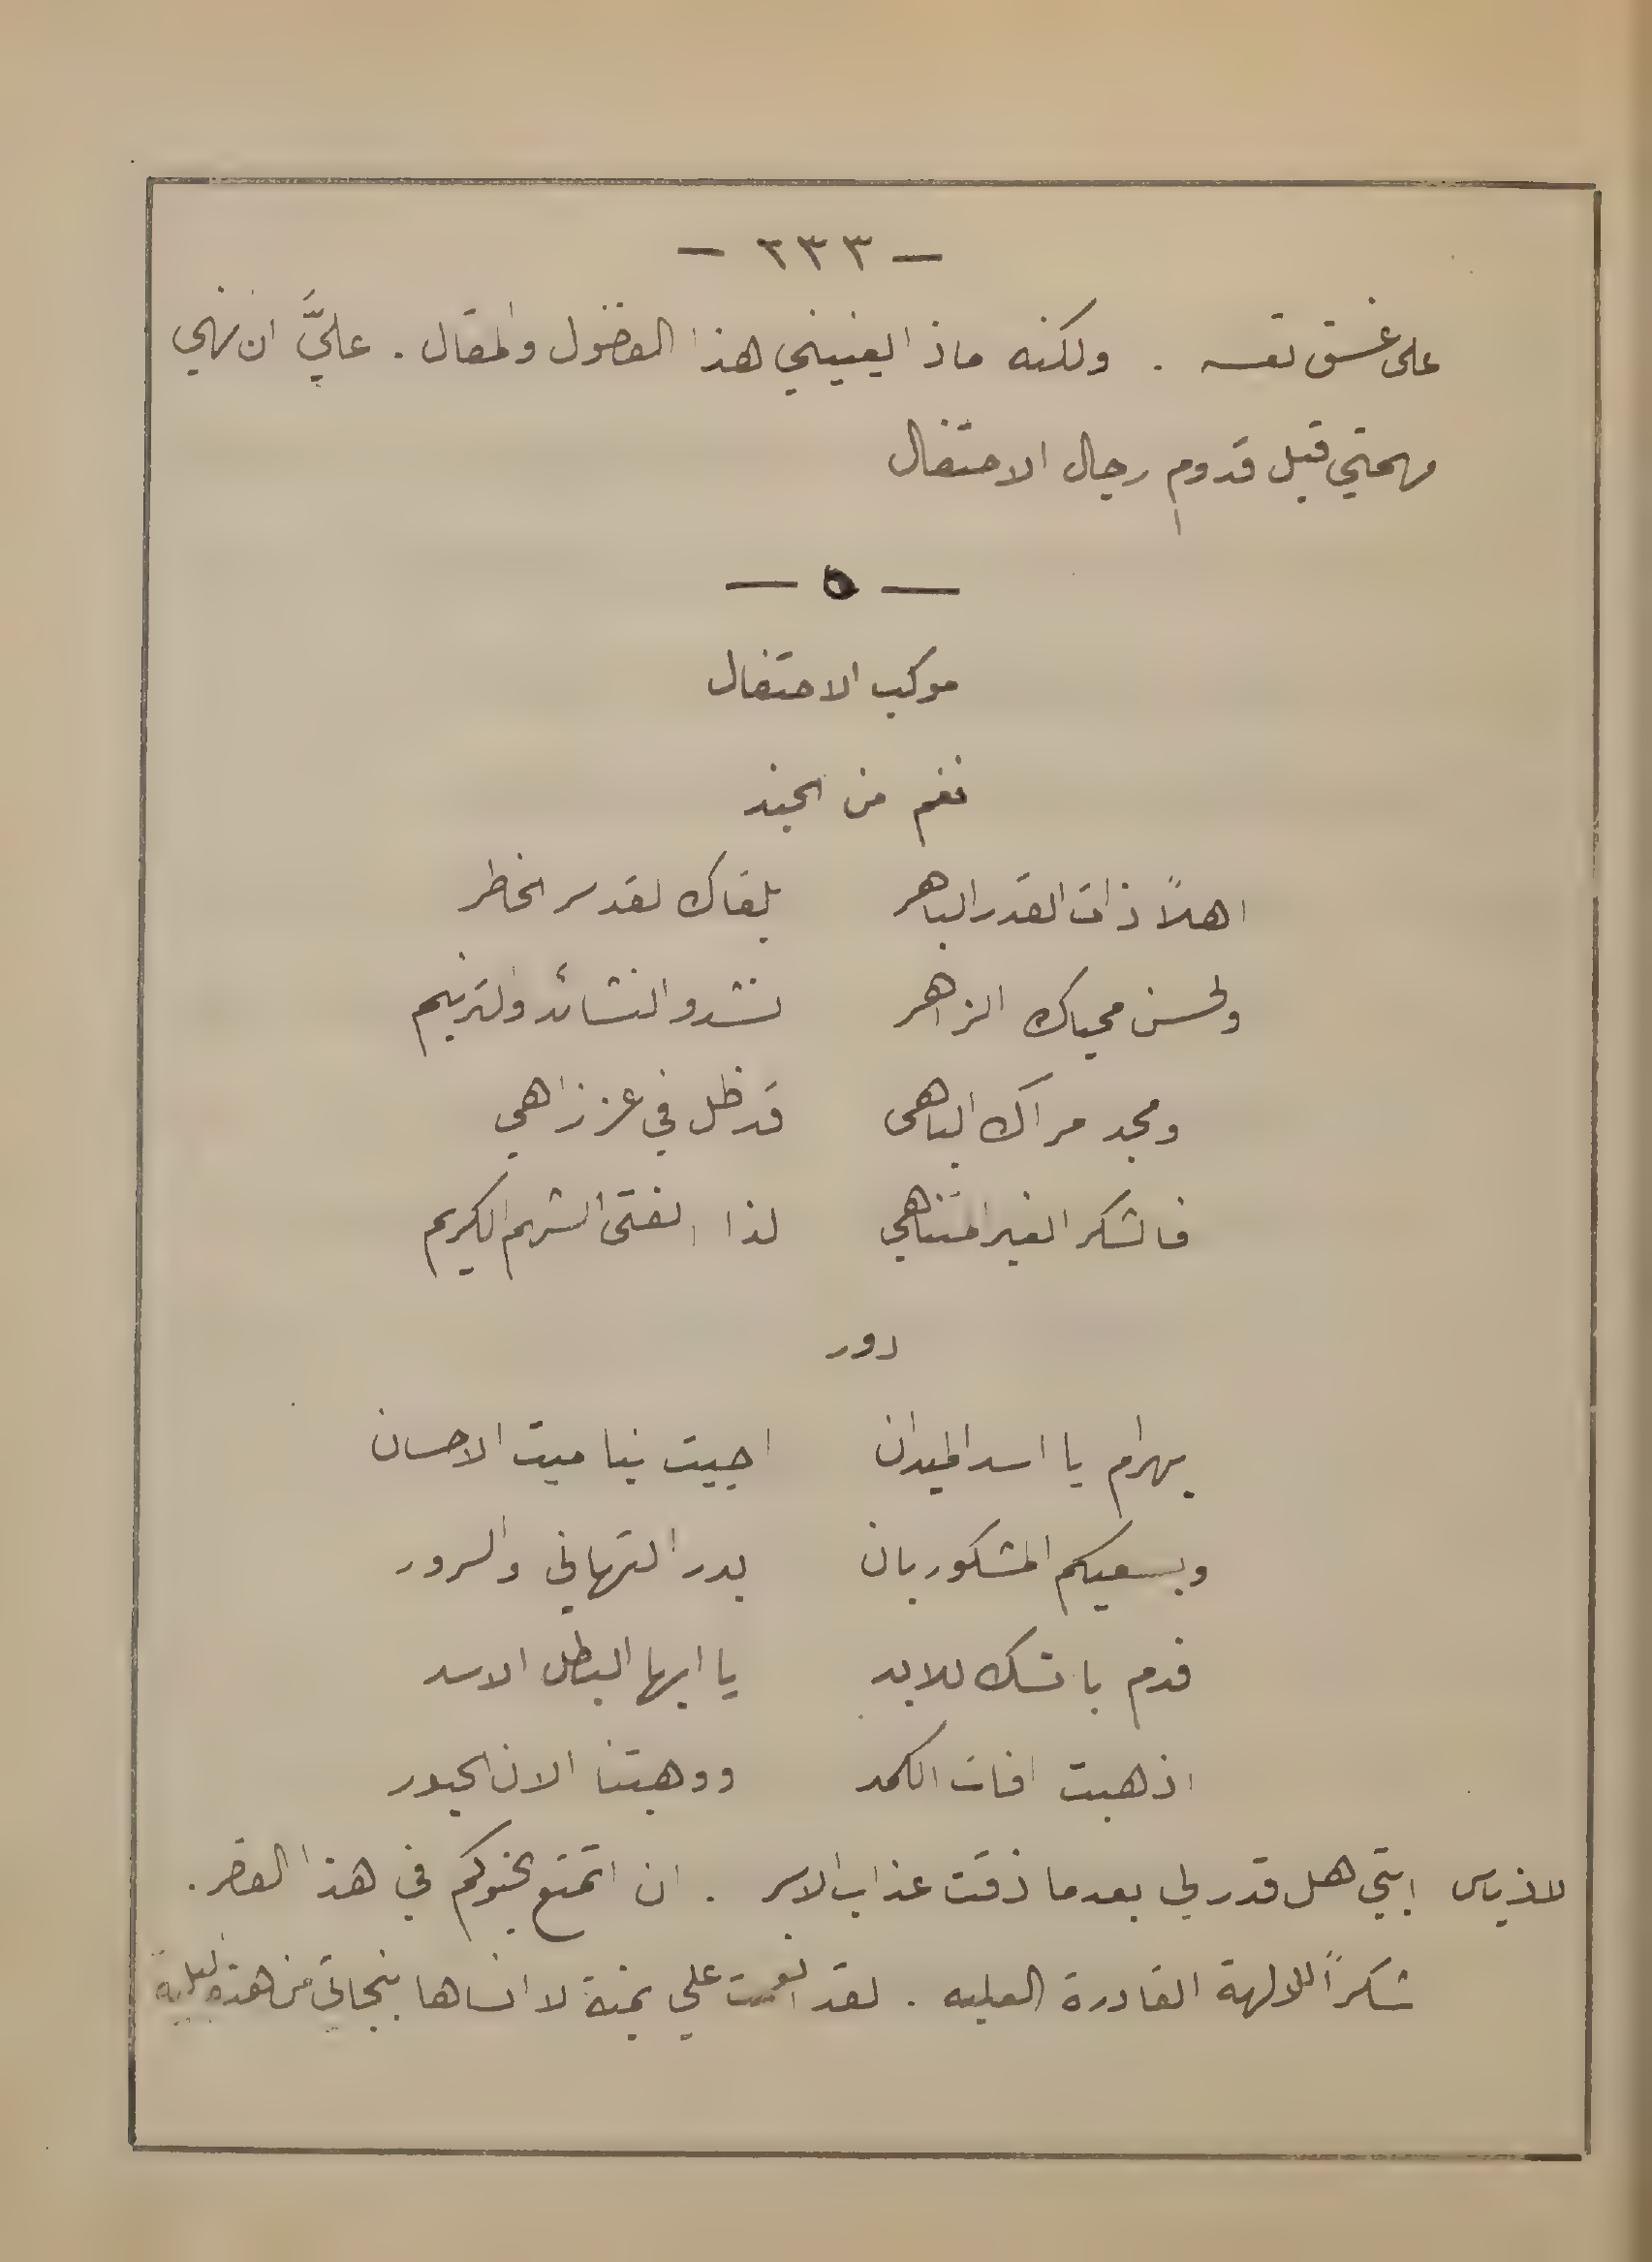 — ٢٣٣ —
على عشق نفسه . ولكنه ماذا يفنيني هذا الفضول والمقال . عليَّ ان نهي
مهمتي قبل قدوم رجال الاحتفال
— ٥ —
موكب الاحتفال
نغم من الجند
اهلاً ذات القدر الباهر بلقاك لقد سر الخاطر
ولحسن محياك الزاهر نشدو النشائد والترنيم
ومجد مراك الباهي قد ظل في عز زاهي
فالشكر الغير المتناهي لذا الفتى الشهم الكريم
دور
بهرام يا اسد الميدان احييت بنا ميت الاحسان
وبسعيكم المشكور بان بدر التهاني والسرور
قدم باتسك للابد يا ايها البطل الاسد
اذهبت افات الكمد ووهبتنا الان الحبور
للاذياس ابتي هل قدر لي بعدما ذقت عذاب الاسر . ان اتمتع بحنوكم في هذا القصر .
شكراً للالهة القادرة العليه . لقد انعمت علي بمنة لا انساها بنجاتي من هذه البليه